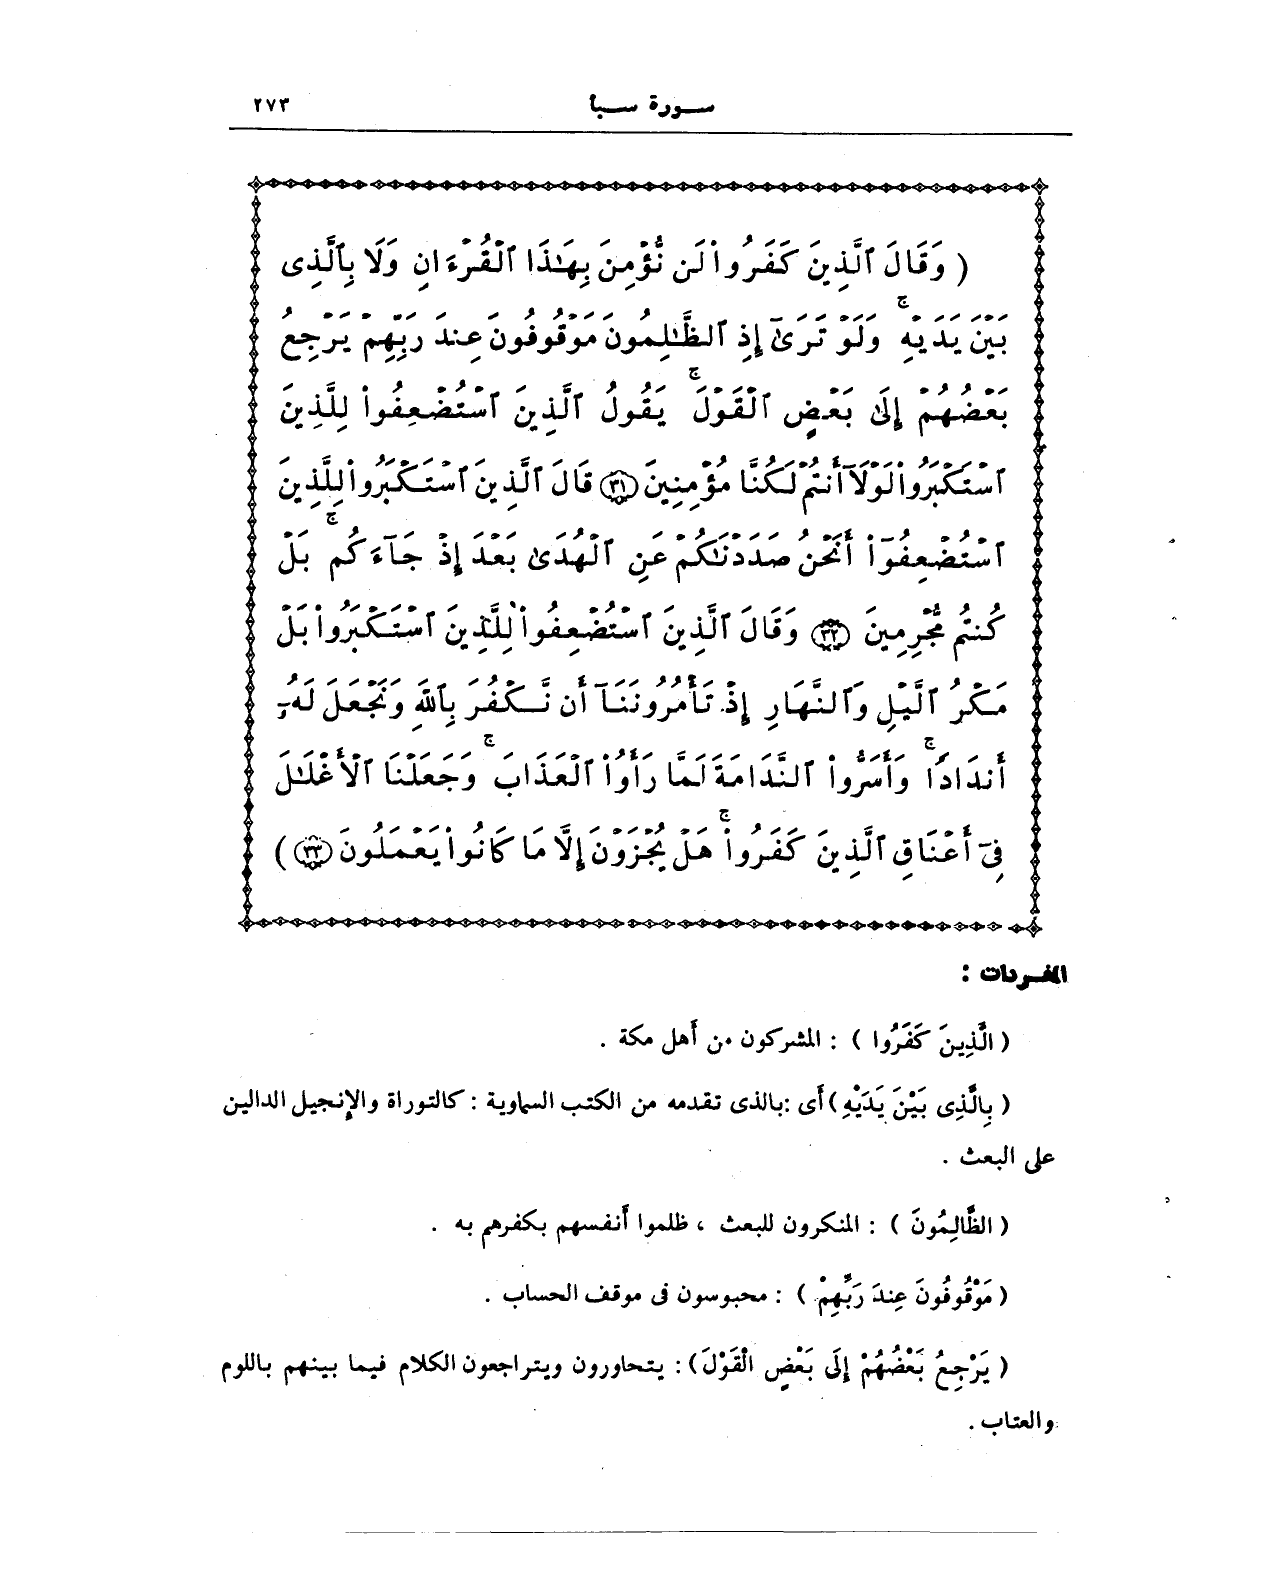 سورة سبأ ٢٧٣
( وَقَالَ ٱلَّذِينَ كَفَرُوا۟ لَن نُّؤْمِنَ بِهَـٰذَا ٱلْقُرْءَانِ وَلَا بِٱلَّذِى
بَيْنَ يَدَيْهِ ۗ وَلَوْ تَرَىٰٓ إِذِ ٱلظَّـٰلِمُونَ مَوْقُوفُونَ عِندَ رَبِّهِمْ يَرْجِعُ
بَعْضُهُمْ إِلَىٰ بَعْضٍ ٱلْقَوْلَ ۚ يَقُولُ ٱلَّذِينَ ٱسْتُضْعِفُوا۟ لِلَّذِينَ
ٱسْتَكْبَرُوا۟ لَوْلَآ أَنتُمْ لَكُنَّا مُؤْمِنِينَ ٣١ قَالَ ٱلَّذِينَ ٱسْتَكْبَرُوا۟ لِلَّذِينَ
ٱسْتُضْعِفُوٓا۟ أَنَحْنُ صَدَدْنَـٰكُمْ عَنِ ٱلْهُدَىٰ بَعْدَ إِذْ جَآءَكُم ۖ بَلْ
كُنتُم مُّجْرِمِينَ ٣٢ وَقَالَ ٱلَّذِينَ ٱسْتُضْعِفُوا۟ لِلَّذِينَ ٱسْتَكْبَرُوا۟ بَلْ
مَكْرُ ٱلَّيْلِ وَٱلنَّهَارِ إِذْ تَأْمُرُونَنَآ أَن نَّكْفُرَ بِٱللَّهِ وَنَجْعَلَ لَهُۥٓ
أَندَادًا ۚ وَأَسَرُّوا۟ ٱلنَّدَامَةَ لَمَّا رَأَوُا۟ ٱلْعَذَابَ ۚ وَجَعَلْنَا ٱلْأَغْلَـٰلَ
فِىٓ أَعْنَاقِ ٱلَّذِينَ كَفَرُوا۟ ۚ هَلْ يُجْزَوْنَ إِلَّا مَا كَانُوا۟ يَعْمَلُونَ ٣٣ )
المفردات :
( الَّذِينَ كَفَرُوا ) : المشركون من أهل مكة .
( بِالَّذِى بَيْنَ يَدَيْهِ ) أى : بالذى تقدمه من الكتب السماوية : كالتوراة والإنجيل الدالين
على البعث .
( الظَّالِمُونَ ) : المنكرون للبعث ، ظلموا أنفسهم بكفرهم به .
( مَوْقُوفُونَ عِندَ رَبِّهِمْ ) : محبوسون فى موقف الحساب .
( يَرْجِعُ بَعْضُهُمْ إِلَى بَعْضٍ الْقَوْلَ ) : يتحاورون ويتراجعون الكلام فيما بينهم باللوم
والعتاب .